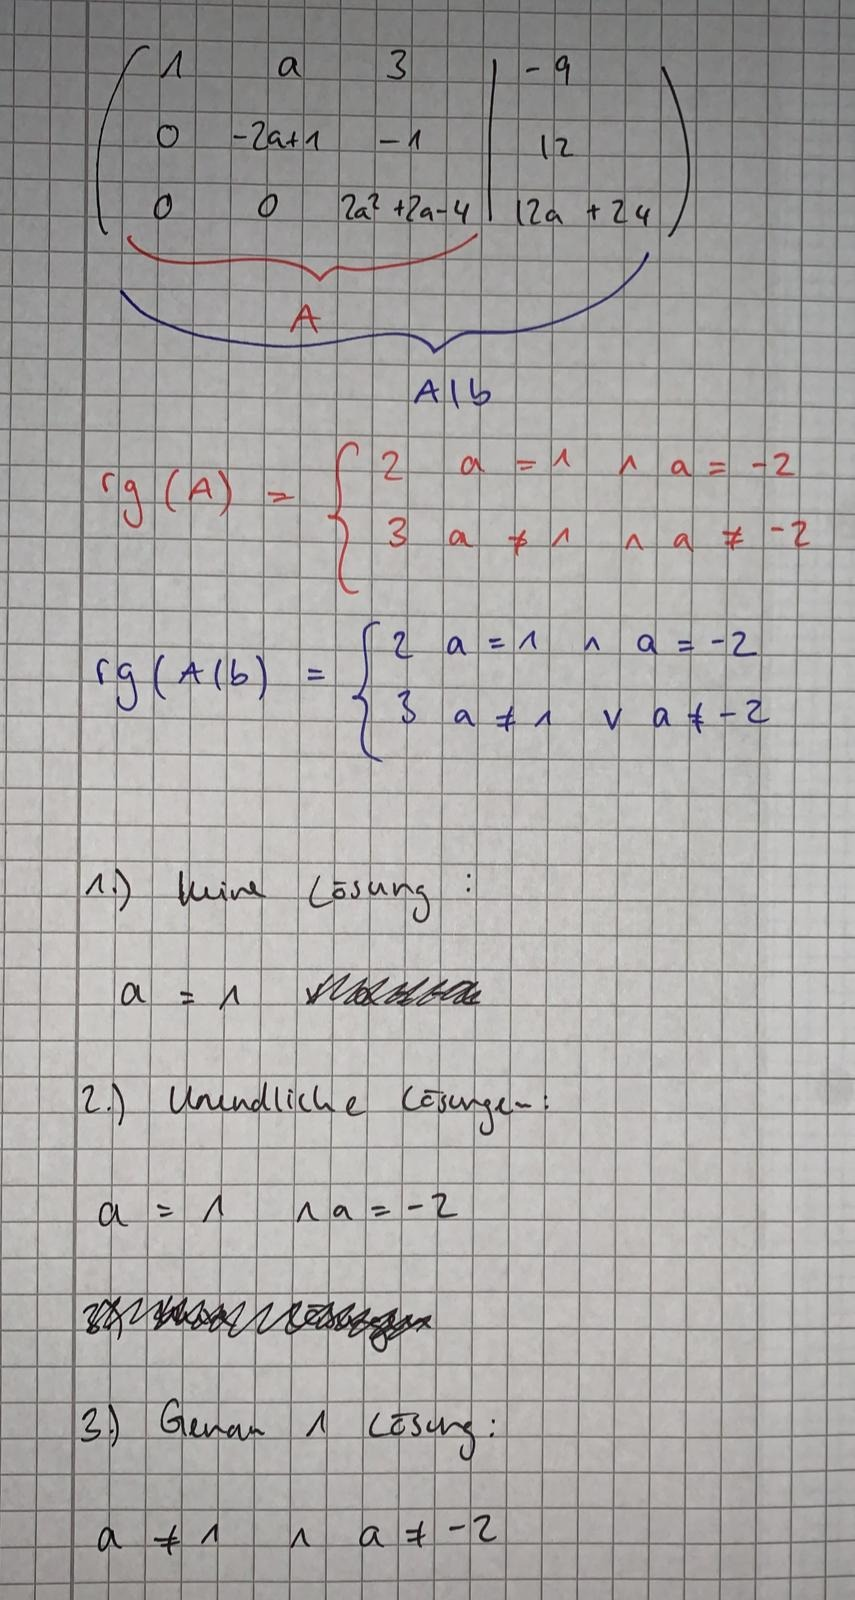 1 a 3 | -9
0 -2a+1 -1 | 12
0 0 2a² +2a-4 | 12a + 24
A
A|b
rg (A) = { 2 a = 1 ∧ a = -2
3 a ≠ 1 ∧ a ≠ -2
rg (A|b) = { 2 a = 1 ∧ a = -2
3 a ≠ 1 ∨ a ≠ -2
1.) Keine Lösung :
a = 1
2.) Unendliche Lösungen:
a = 1 ∧ a = -2
3.) Genau 1 Lösung:
a ≠ 1 ∧ a ≠ -2